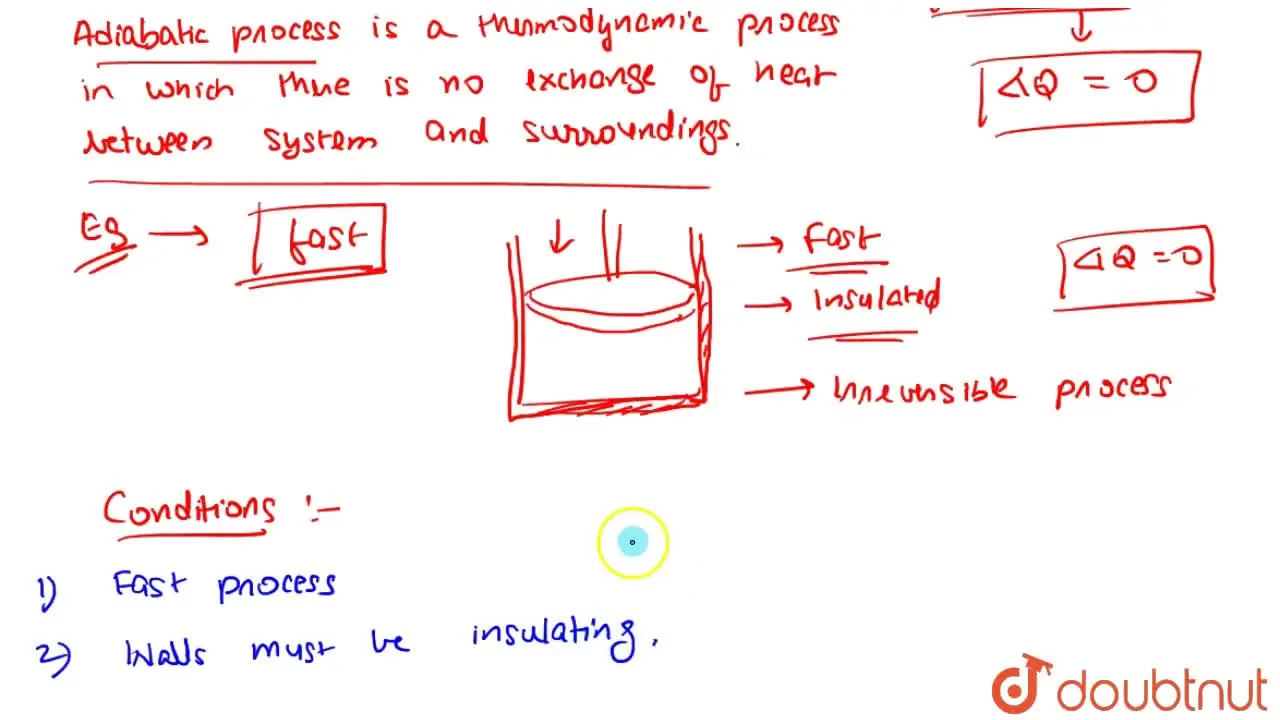 Adiabatic process is a thermodynamic process
in which there is no exchange of heat
between system and surroundings.
ΔQ = 0
Eg → fast
→ Fast
→ Insulated
→ Irreversible process
ΔQ = 0
Conditions :-
1) Fast process
2) Walls must be insulating.
doubtnut